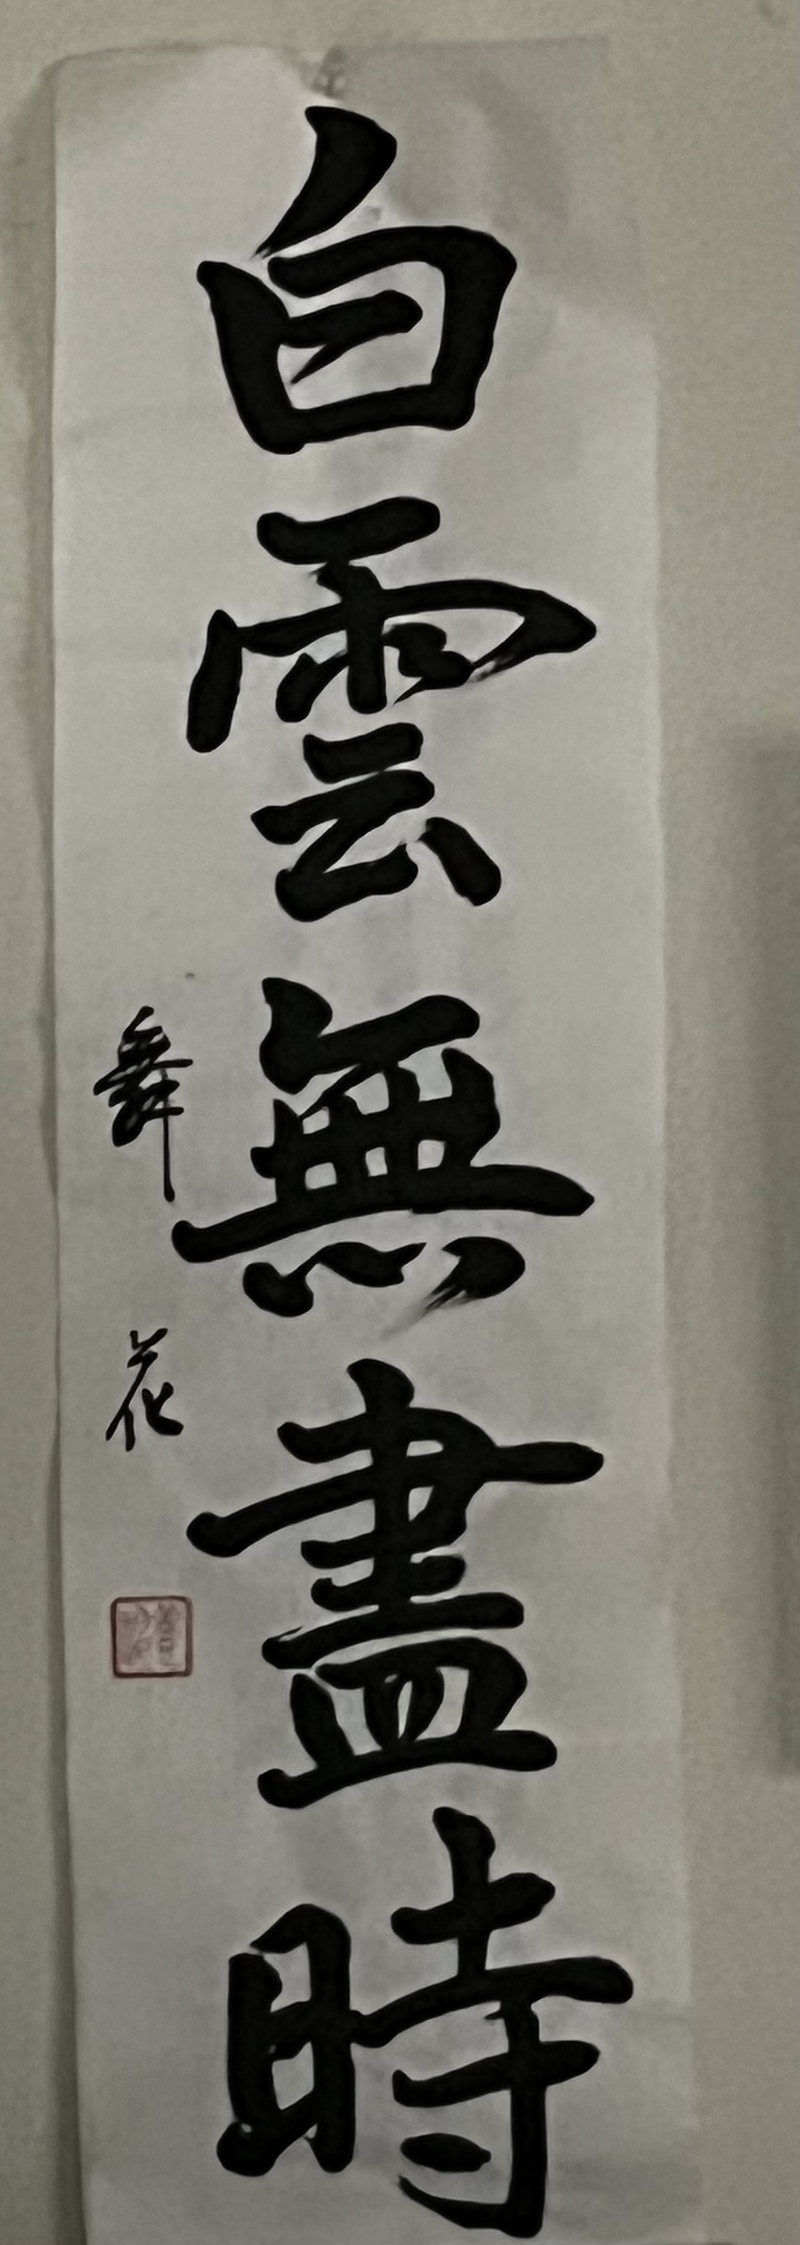 白雲無盡時
舞花